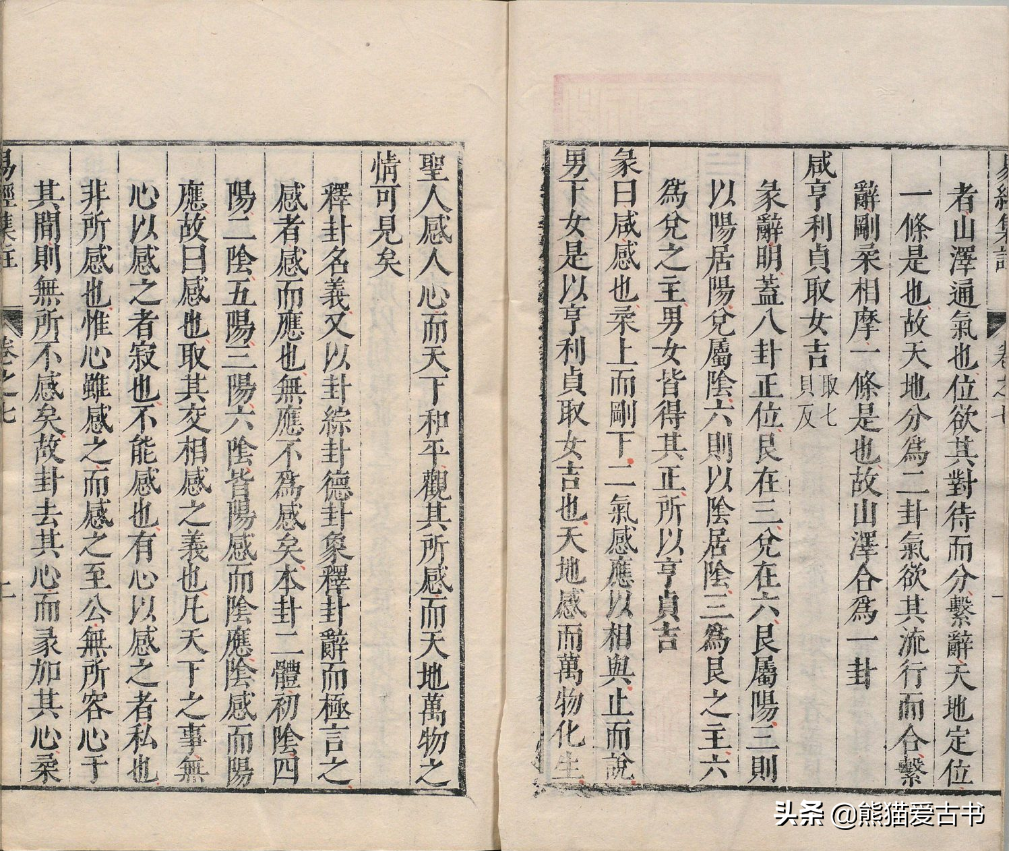 易經集註
卷之七
一
者山澤通氣也位欲其對待而分繫辭天地定位
一條是也故天地分爲二卦氣欲其流行而合繫
辭剛柔相摩一條是也故山澤合爲一卦
咸亨利貞取女吉取七具反
彖辭明蓋八卦正位艮在三兌在六艮屬陽三則
以陽居陽兌屬陰六則以陰居陰三爲艮之主六
爲兌之主男女皆得其正所以亨貞吉
彖曰咸感也柔上而剛下二氣感應以相與止而說
男下女是以亨利貞取女吉也天地感而萬物化生
聖人感人心而天下和平觀其所感而天地萬物之
情可見矣
釋卦名義又以卦綜卦德卦象釋卦辭而極言之
感者感而應也無應不爲感矣本卦二體初陰四
陽二陰五陽三陽六陰皆陽感而陰應陰感而陽
應故曰感也取其交相感之義也凡天下之事無
心以感之者寂也不能感也有心以感之者私也
非所感也惟心雖感之而感之至公無所容心于
其間則無所不感矣故卦去其心而彖加其心柔
易經集註
卷之七
头条 @熊猫爱古书